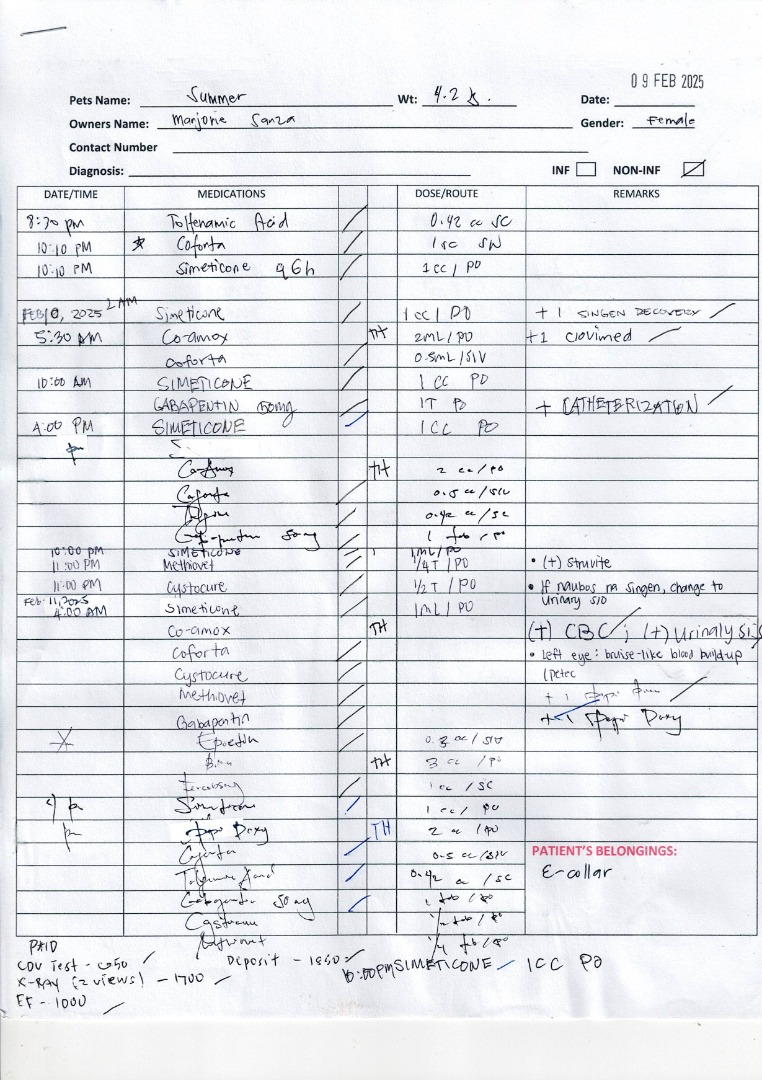 09 FEB 2025
Pets Name: Summer Wt: 4.2 k. Date:
Owners Name: Marjorie Sanza Gender: Female
Contact Number
Diagnosis: INF NON-INF
DATE/TIME MEDICATIONS DOSE/ROUTE REMARKS
8:30 pm Tolfenamic Acid 0.42 cc SC
10:10 PM Coforta 1cc
10:10 PM Simeticone q6h 1cc / PO
2 AM
2025 Simeticone 1cc / PO + 1 SINGEN RECOVERY
5:30 AM Co-amox TH 2mL / PO +1 Clovimed
Coforta 0.5mL/SIV
10:00 AM SIMETICONE 1 CC PO
GABAPENTIN 50mg 1T PO + CATHETERIZATION
4:00 PM SIMETICONE 1CC PO
TH 2 cc / PO
Coforta 0.5 cc / SIV
0.42 cc / SC
50mg 1 tab / PO
10:00 PM SIMETICONE 1mL / PO
11:00 PM Methiovet 1/4 T / PO • (+) Struvite
11:00 PM Cystocure 1/2 T / PO • If naubos na singen, change to
urinary S/O
Feb. 11, 2025
4:00 AM Simeticone 1mL / PO
Co-amox TH (+) CBC ; (+) Urinalysis
Coforta • Left eye: bruise-like blood build-up
Cystocure
Methiovet + 1
Gabapentin + 1 Doxy
Epoetin 0.3 cc / SIV
TH 3 cc / PO
1cc / SC
1 cc / PO
Doxy TH 2 cc / PO
Coforta 0.5 cc / SIV
PATIENT'S BELONGINGS:
0.42 cc / SC E-collar
Gabapentin 50mg 1 tab / PO
1/2 tab / PO
1/4 tab / PO
PAID
CDV Test - Deposit - 1850
10:00PM SIMETICONE 1CC PO
X-RAY (2 views) - 1700
EF - 1000